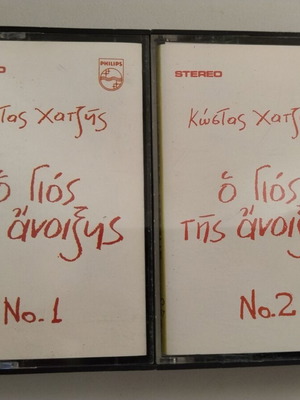 PHILIPS
τας Χατζῆς
ὁ Γιός
ἄνοιξης
No. 1
STEREO
Κώστας Χατζ
ὁ Γιός
τῆς ἄνοιξ
No. 2